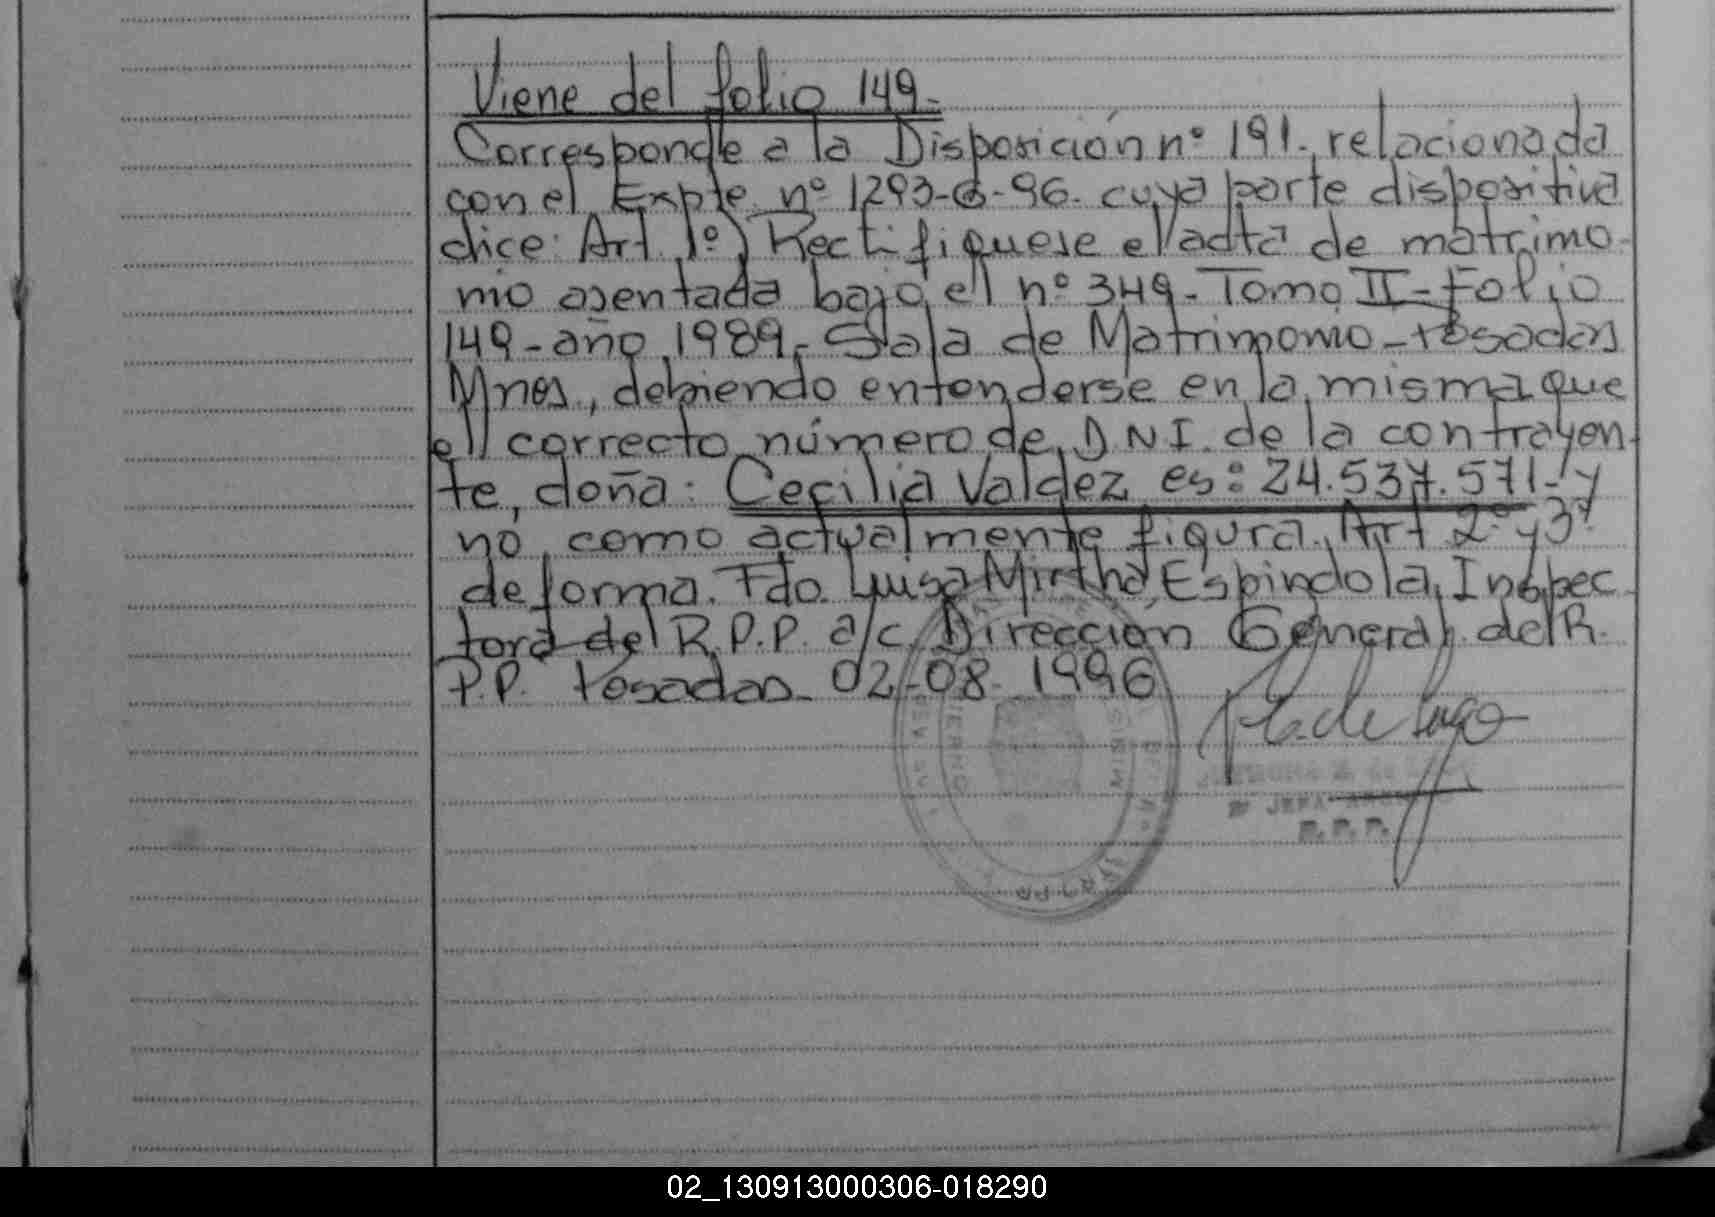 Viene del folio 149.-
Corresponde a la Disposición nº 191., relacionada
con el Expte. nº 1293-G-96. cuya parte dispositiva
dice: Art. 1º) Rectifiquese el acta de matrimo-
nio asentada bajo el nº 349.- Tomo II - Folio
149 - año 1989,- Sala de Matrimonio - Posadas
Mnes., debiendo entenderse en la misma que
el correcto número de D.N.I. de la contrayen-
te, doña: Cecilia Valdez es: 24.537.571.- y
no como actualmente figura. Art 2º y 3º
de forma. Fdo. Luisa Mirtha Espindola, Inspec
tora del R.P.P. a/c. Dirección General del R.
P.P. Posadas 02-08-1996
de Lugo
JEFA
R.P.P.
02_130913000306-018290